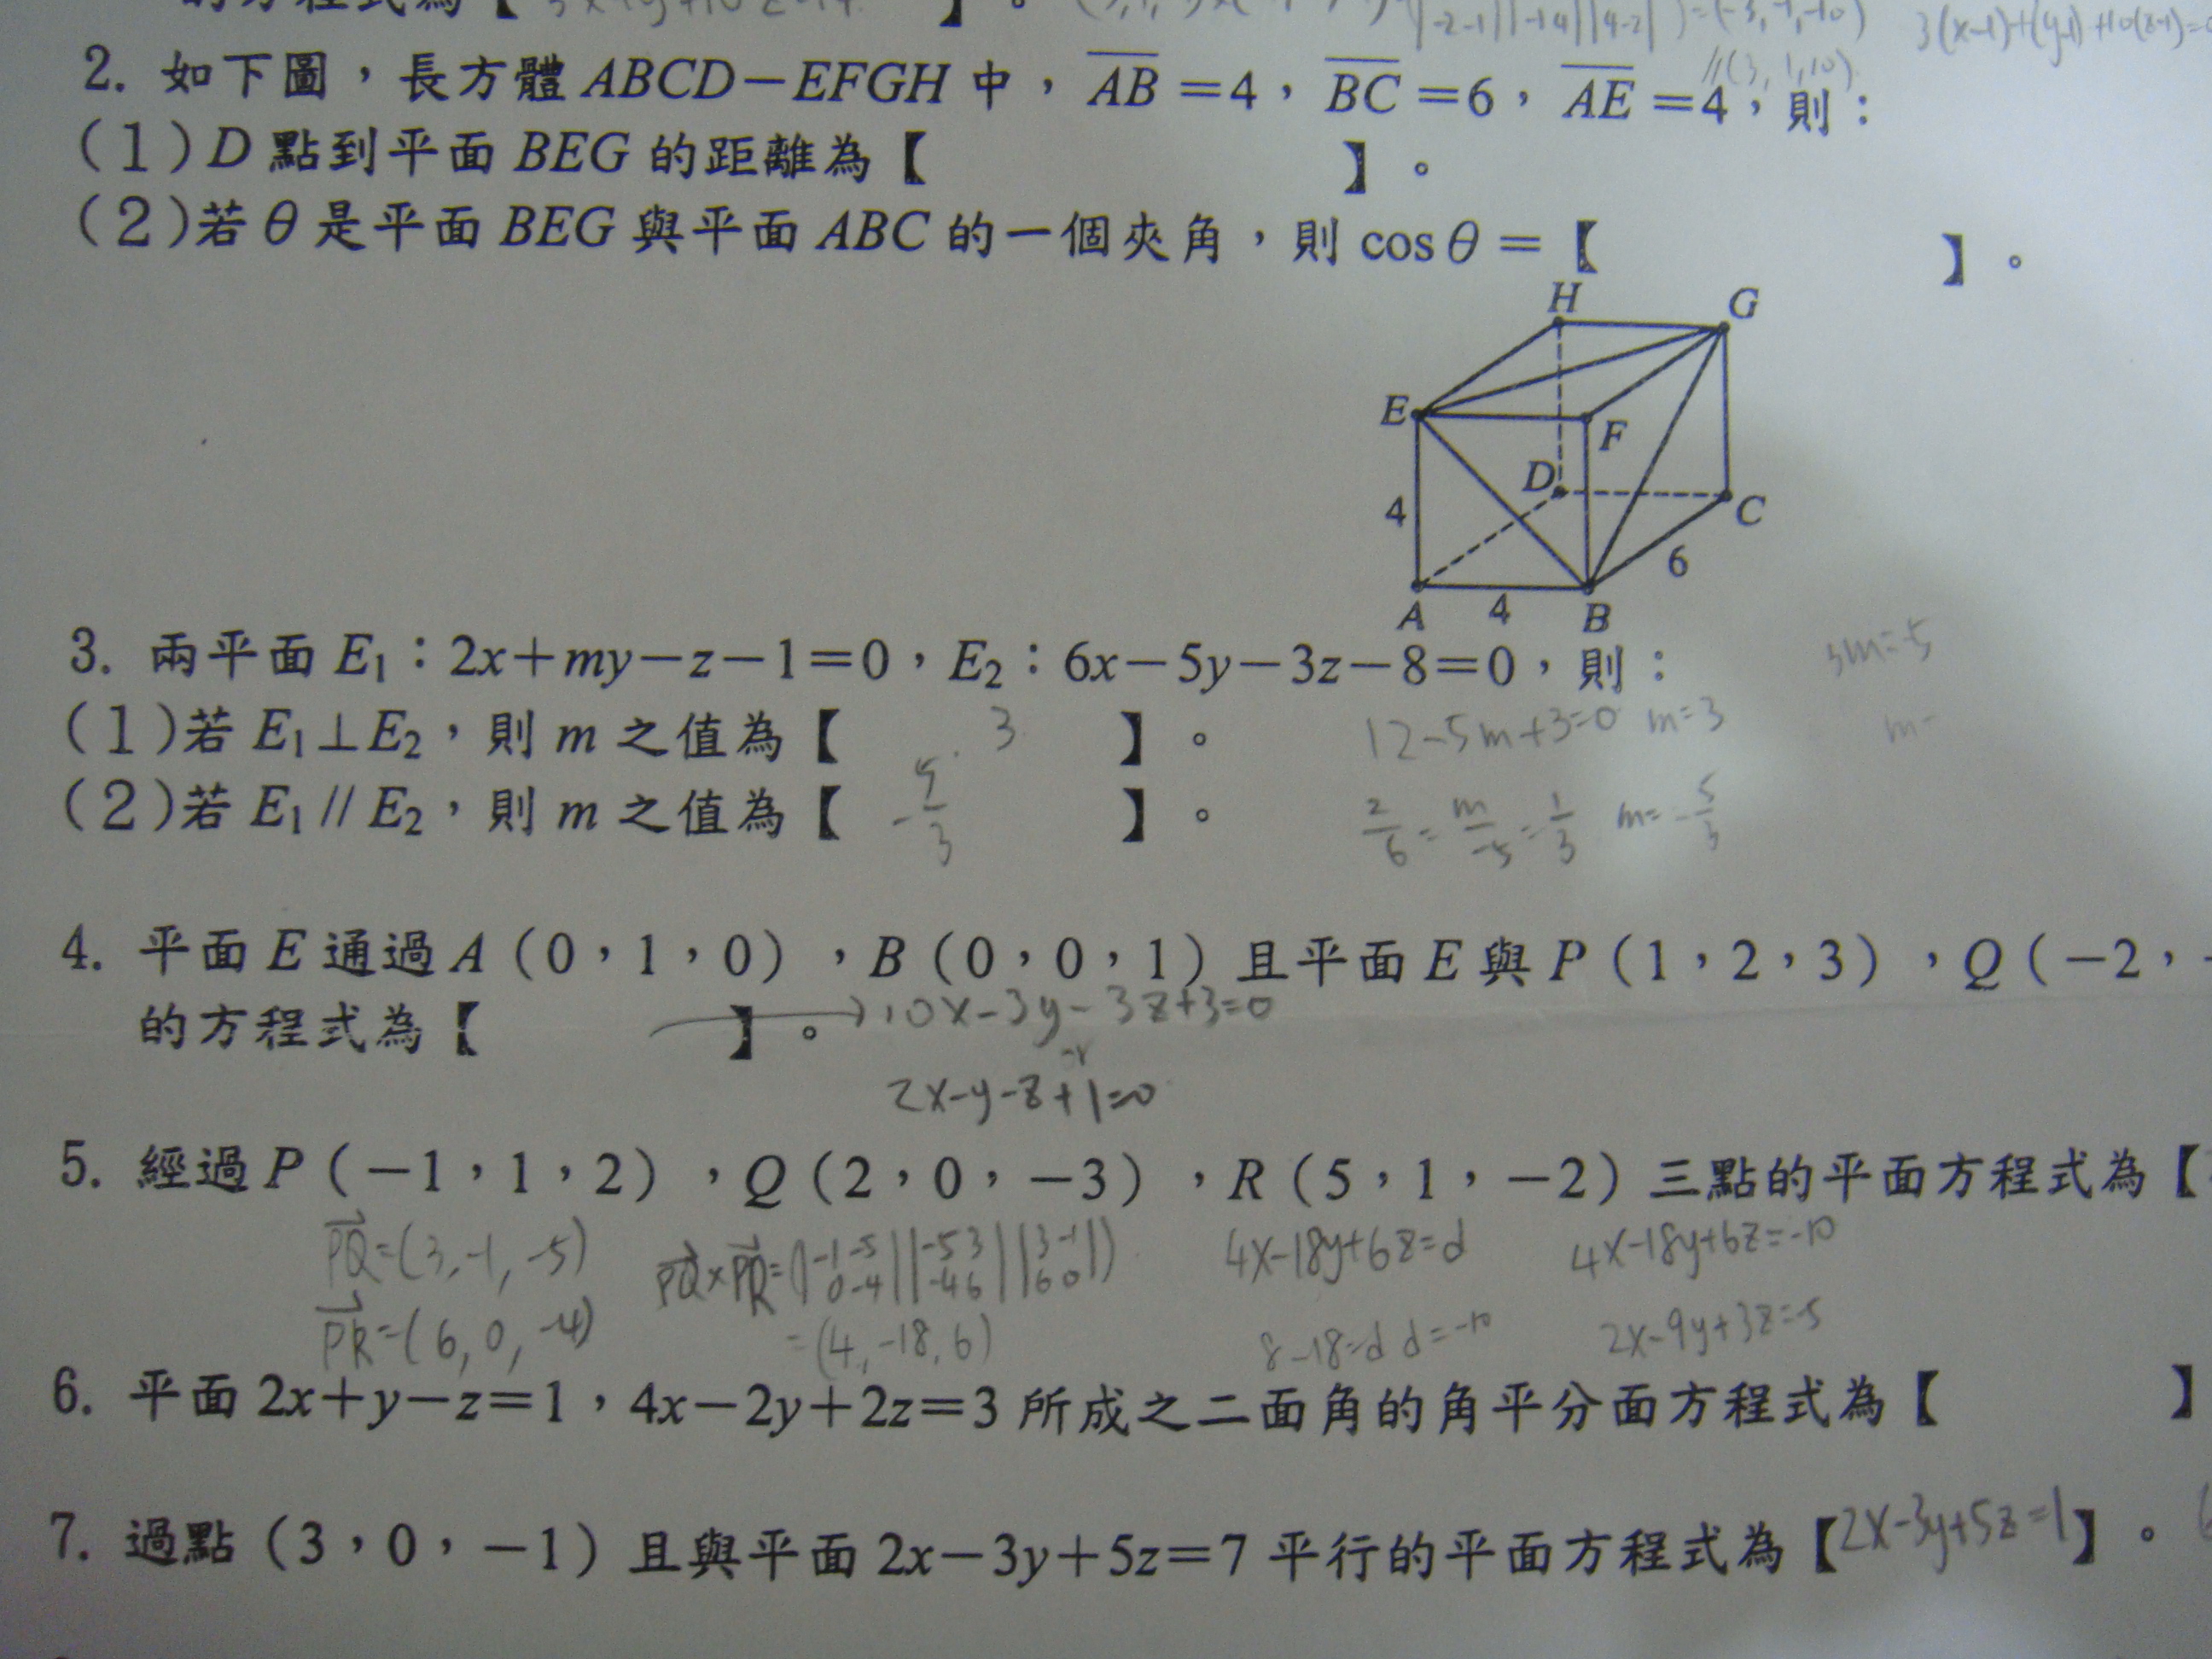 的方程式為【 3x+y+10z=14 】。
3(x-1)+(y-1)+10(z-1)=0
//(3,1,10)
2. 如下圖，長方體 ABCD－EFGH 中，AB＝4，BC＝6，AE＝4，則：
(1) D 點到平面 BEG 的距離為【 】。
(2)若 θ 是平面 BEG 與平面 ABC 的一個夾角，則 cos θ＝【 】。
H G
E F
D C
4
6
A 4 B
3. 兩平面 E₁：2x＋my－z－1＝0，E₂：6x－5y－3z－8＝0，則：
3m=-5
(1)若 E₁⊥E₂，則 m 之值為【 3 】。 12-5m+3=0 m=3
(2)若 E₁ // E₂，則 m 之值為【 -5/3 】。 2/6=m/-5=1/3 m=-5/3
4. 平面 E 通過 A（0，1，0），B（0，0，1）且平面 E 與 P（1，2，3），Q（－2，
的方程式為【 】。 10x-3y-3z+3=0
or
2x-y-z+1=0
5. 經過 P（－1，1，2），Q（2，0，－3），R（5，1，－2）三點的平面方程式為【
PQ=(3,-1,-5) PQ×PR=(|-1 -5| |-5 3| |3 -1|) 4x-18y+6z=d 4x-18y+6z=-10
0 -4 -4 6 6 0
PR=(6,0,-4) =(4,-18,6) 8-18=d d=-10 2x-9y+3z=-5
6. 平面 2x＋y－z＝1，4x－2y＋2z＝3 所成之二面角的角平分面方程式為【 】
7. 過點（3，0，－1）且與平面 2x－3y＋5z＝7 平行的平面方程式為【2x-3y+5z=1】。